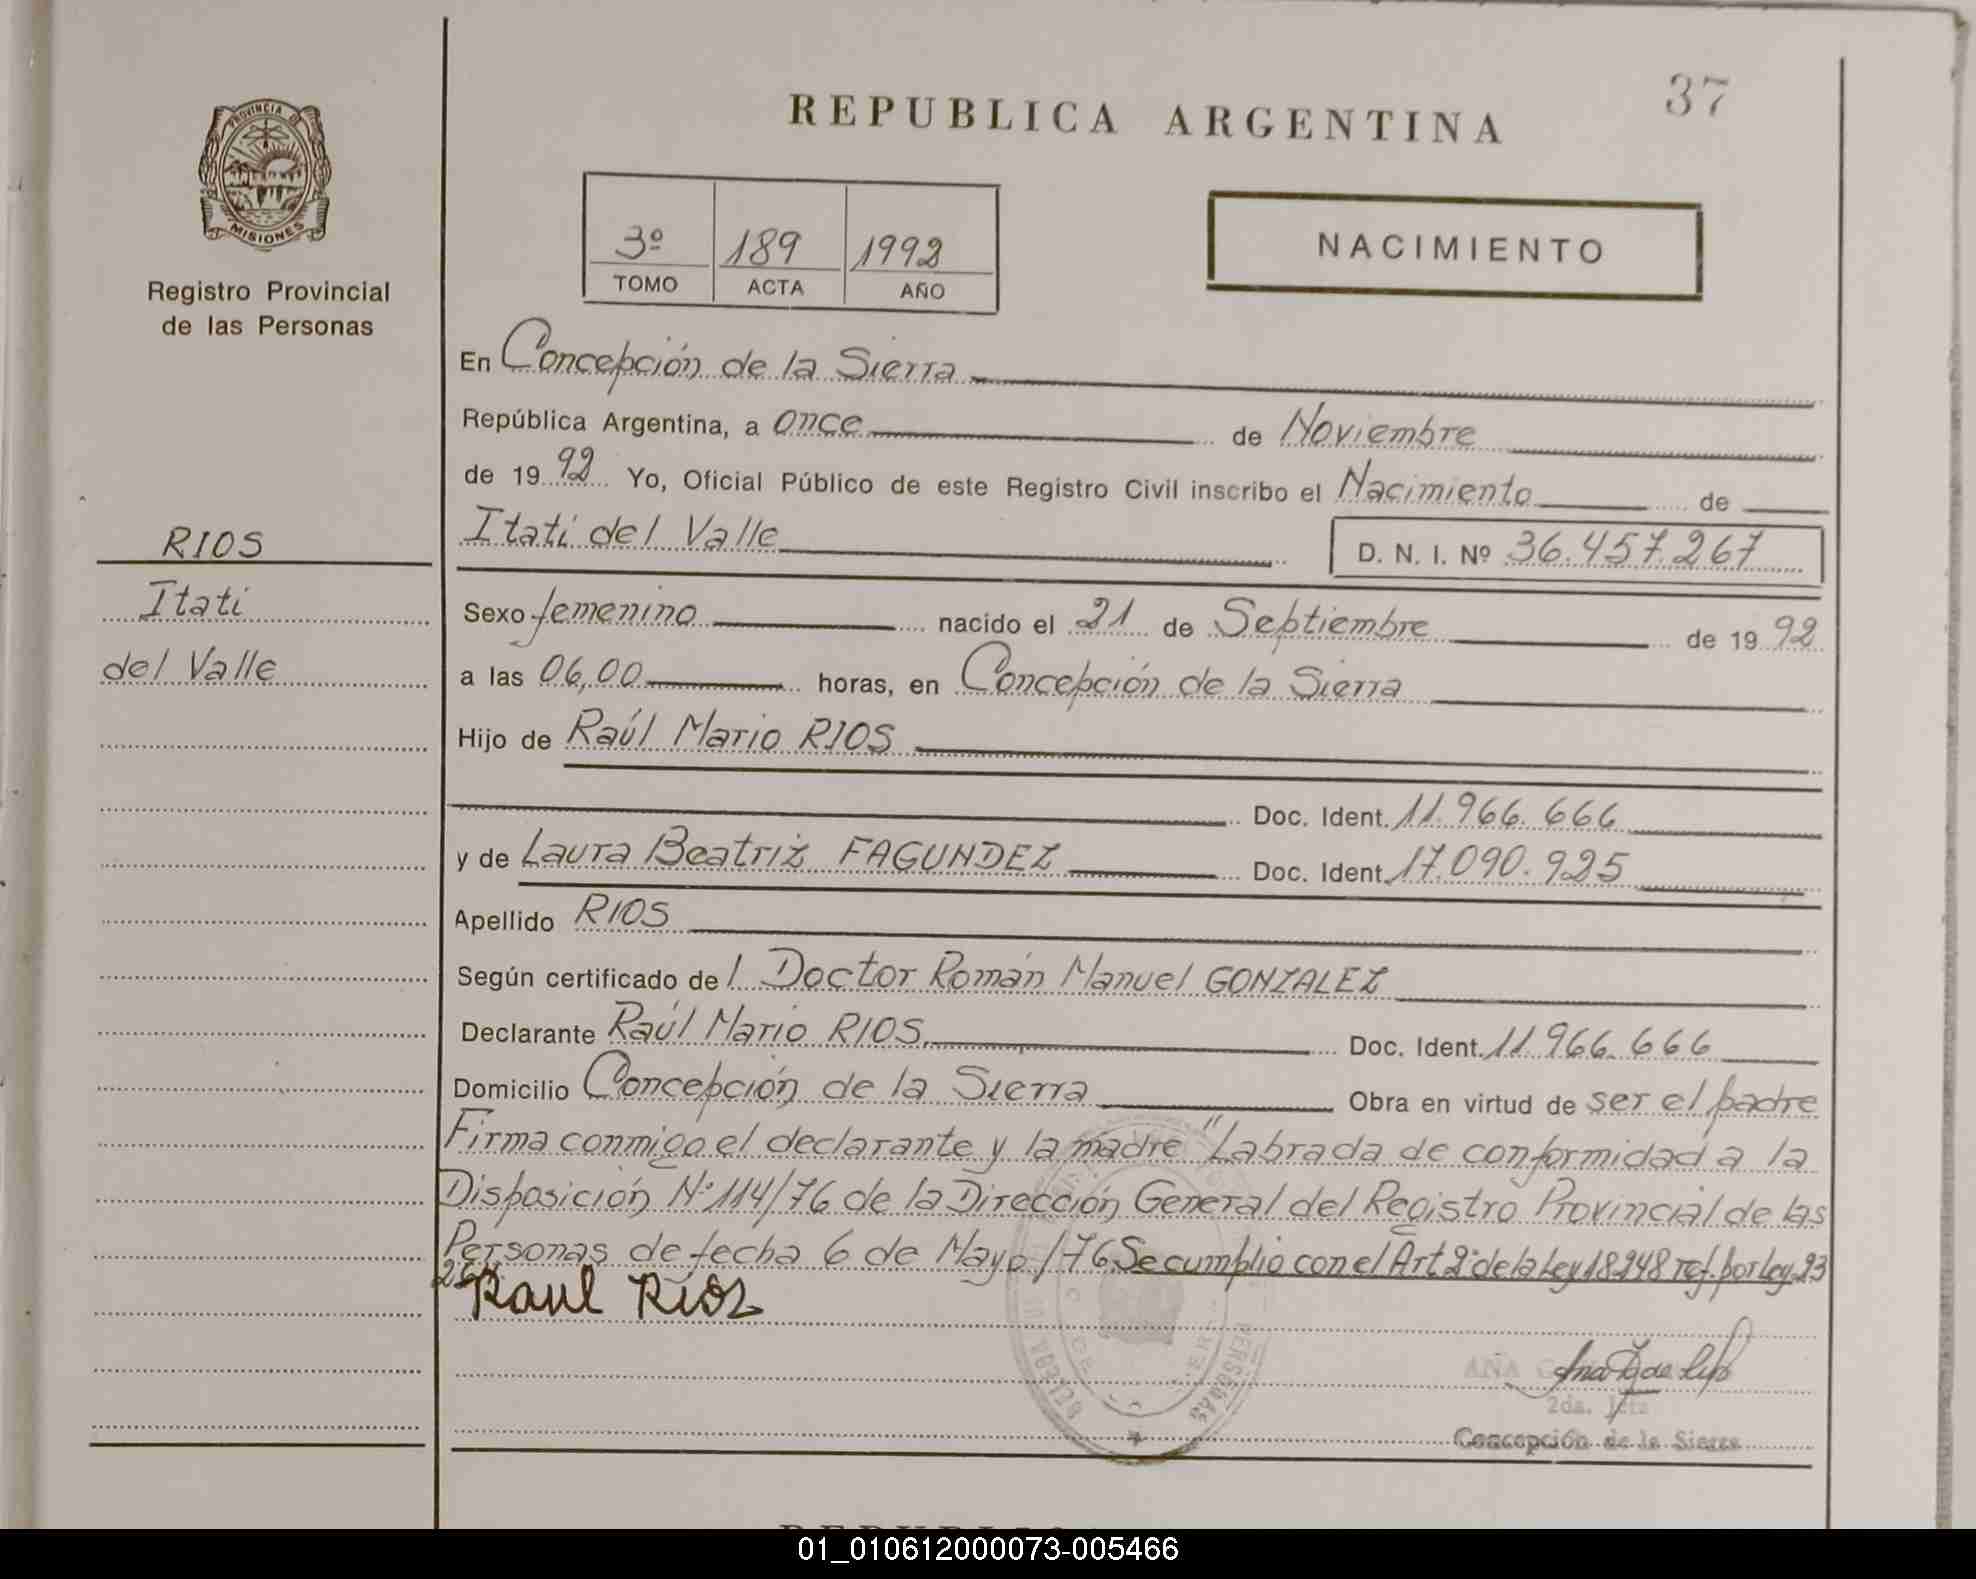 37
REPUBLICA ARGENTINA
PROVINCIA DE
MISIONES
Registro Provincial
de las Personas
3º 189 1992
TOMO ACTA AÑO
NACIMIENTO
En Concepción de la Sierra
República Argentina, a once de Noviembre
de 1992 Yo, Oficial Público de este Registro Civil inscribo el Nacimiento de
Itatí del Valle D. N. I. Nº 36.457.267
RIOS
Itati
del Valle
Sexo femenino nacido el 21 de Septiembre de 1992
a las 06,00 horas, en Concepción de la Sierra
Hijo de Raúl Mario RIOS
Doc. Ident. 11.966.666
y de Laura Beatriz FAGUNDEZ Doc. Ident. 17.090.925
Apellido RIOS
Según certificado del Doctor Román Manuel GONZALEZ
Declarante Raúl Mario RIOS. Doc. Ident. 11.966.666
Domicilio Concepción de la Sierra Obra en virtud de ser el padre
Firma conmigo el declarante y la madre "Labrada de conformidad a la
Disposición Nº 114/76 de la Dirección General del Registro Provincial de las
Personas de fecha 6 de Mayo/76 Se cumplio con el Art 2º de la Ley 18248 ref. por Ley 23
Raul Rios
ANA
2da.
Concepción de la Sierra
01_010612000073-005466